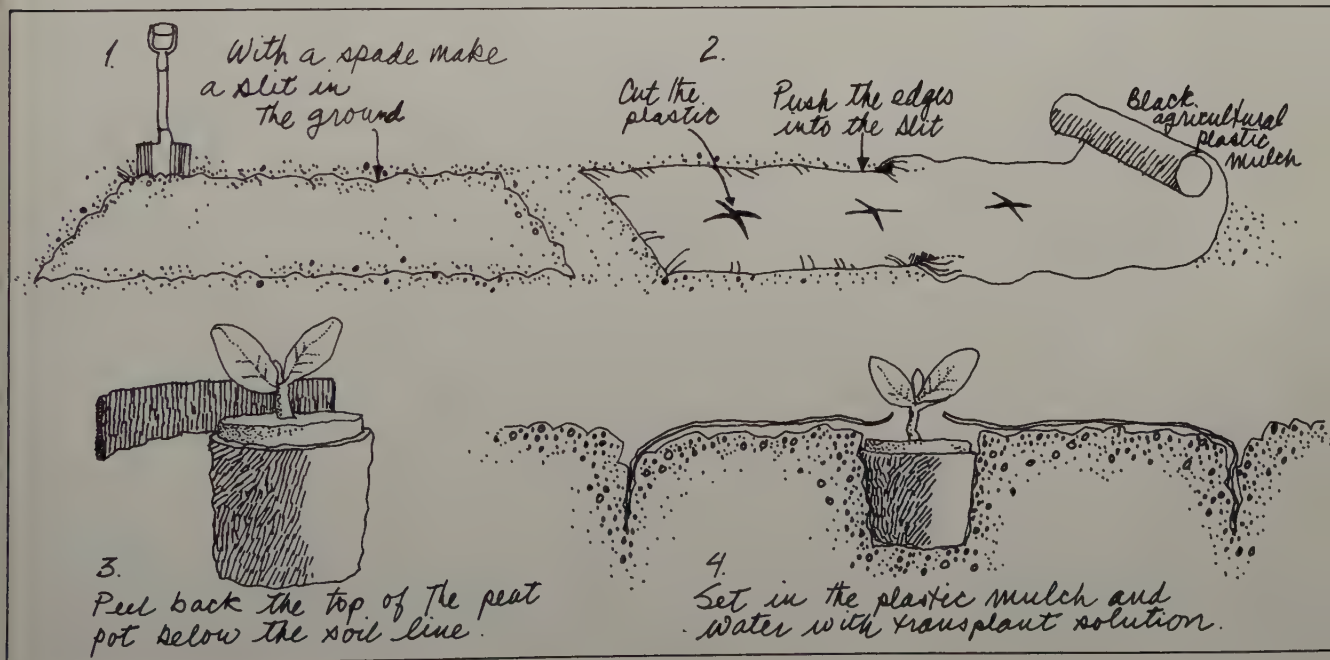 1. With a spade make
a slit in
The ground
2.
Cut the
plastic
Push the edges
into the slit
Black
agricultural
plastic
mulch
3.
Peel back the top of the peat
pot below the soil line.
4.
Set in the plastic mulch and
water with transplant solution.